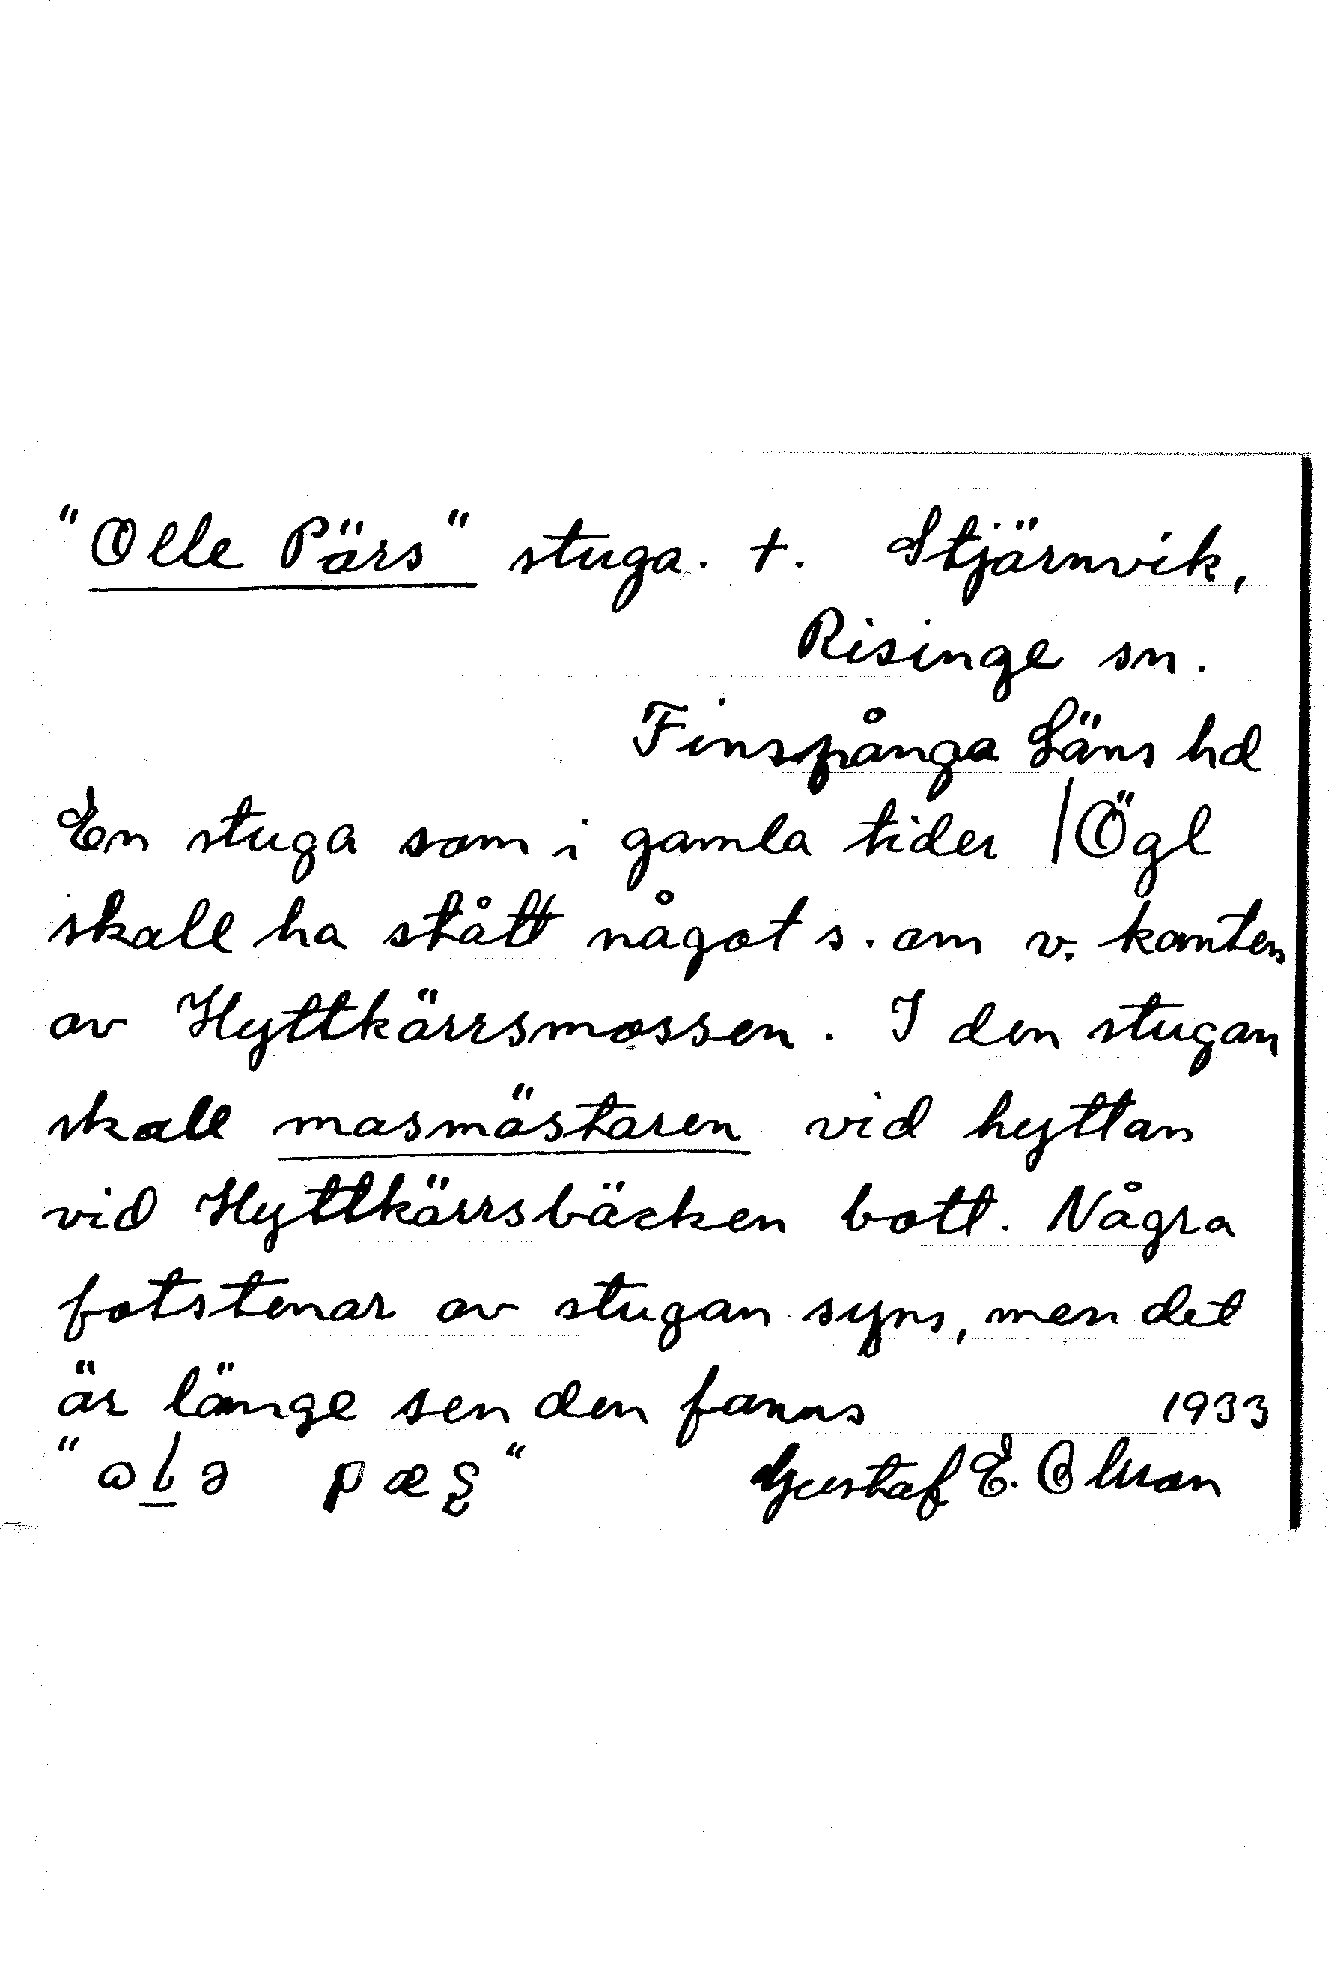 "Olle Pärs" stuga. +. Stjärnvik,
Risinge sn.
Finspånga Läns hd
En stuga som i gamla tider /Ögl
skall ha stått något s. om v. kanten
av Hyttkärrsmossen. I den stugan
skall masmästaren vid hyttan
vid Hyttkärrsbäcken bott. Några
fotstenar av stugan syns, men det
är länge sen den fanns 1933
Gustaf E. Olsson